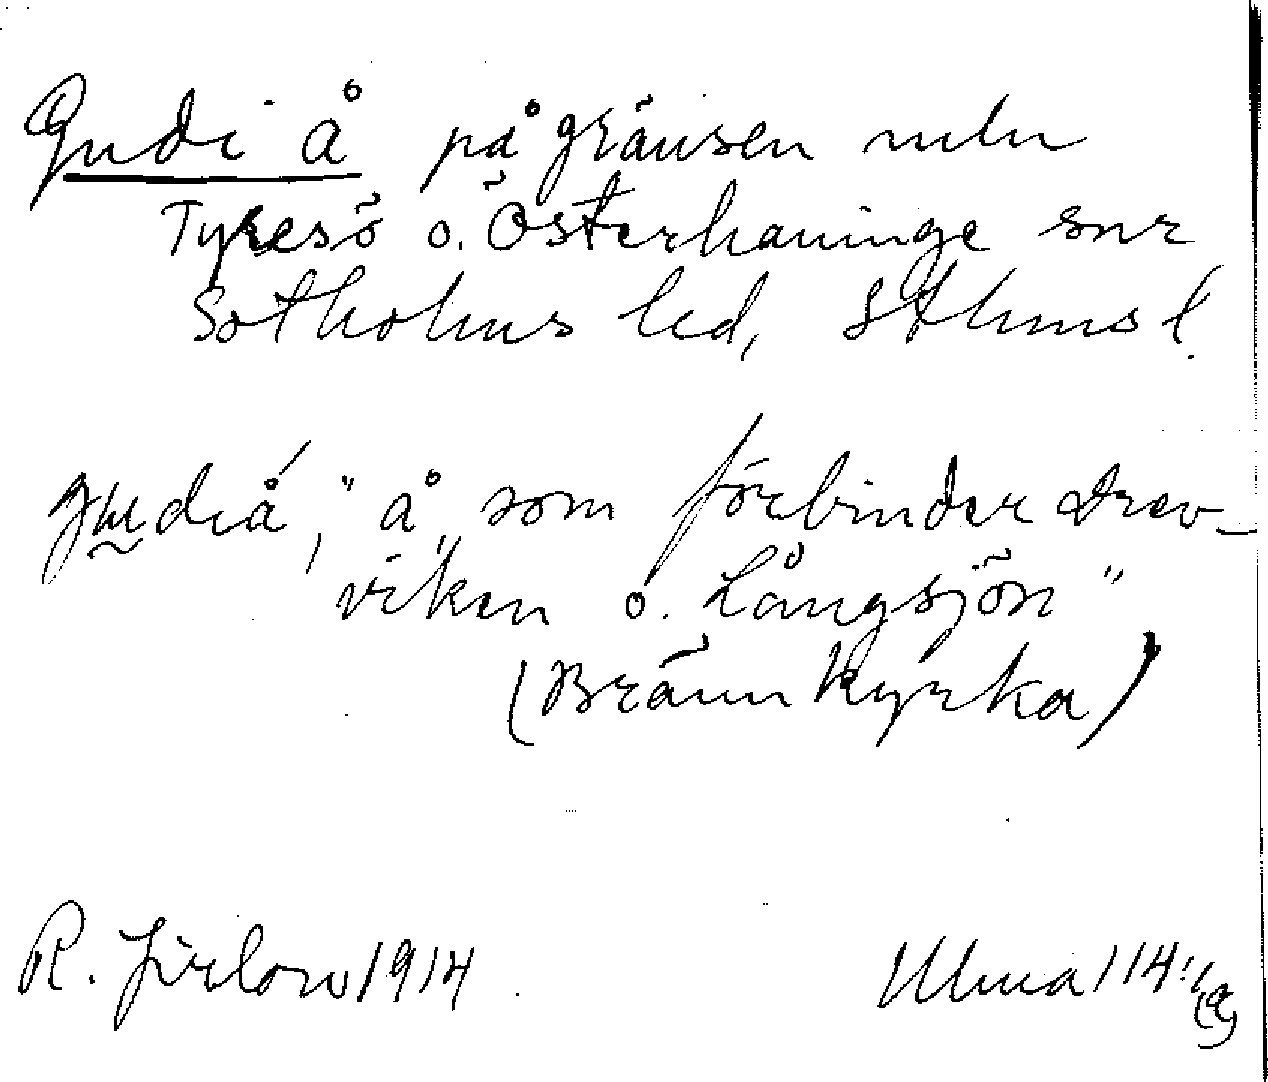 Gudi å på gränsen meln
Tyresö o. Österhaninge snr
Sotholms hd, Sthms l.
gudiå, "å, som förbinder Drev-
viken o. Långsjön"
(Brännkyrka)
R. Jirlow 1914
Ulma 114:1